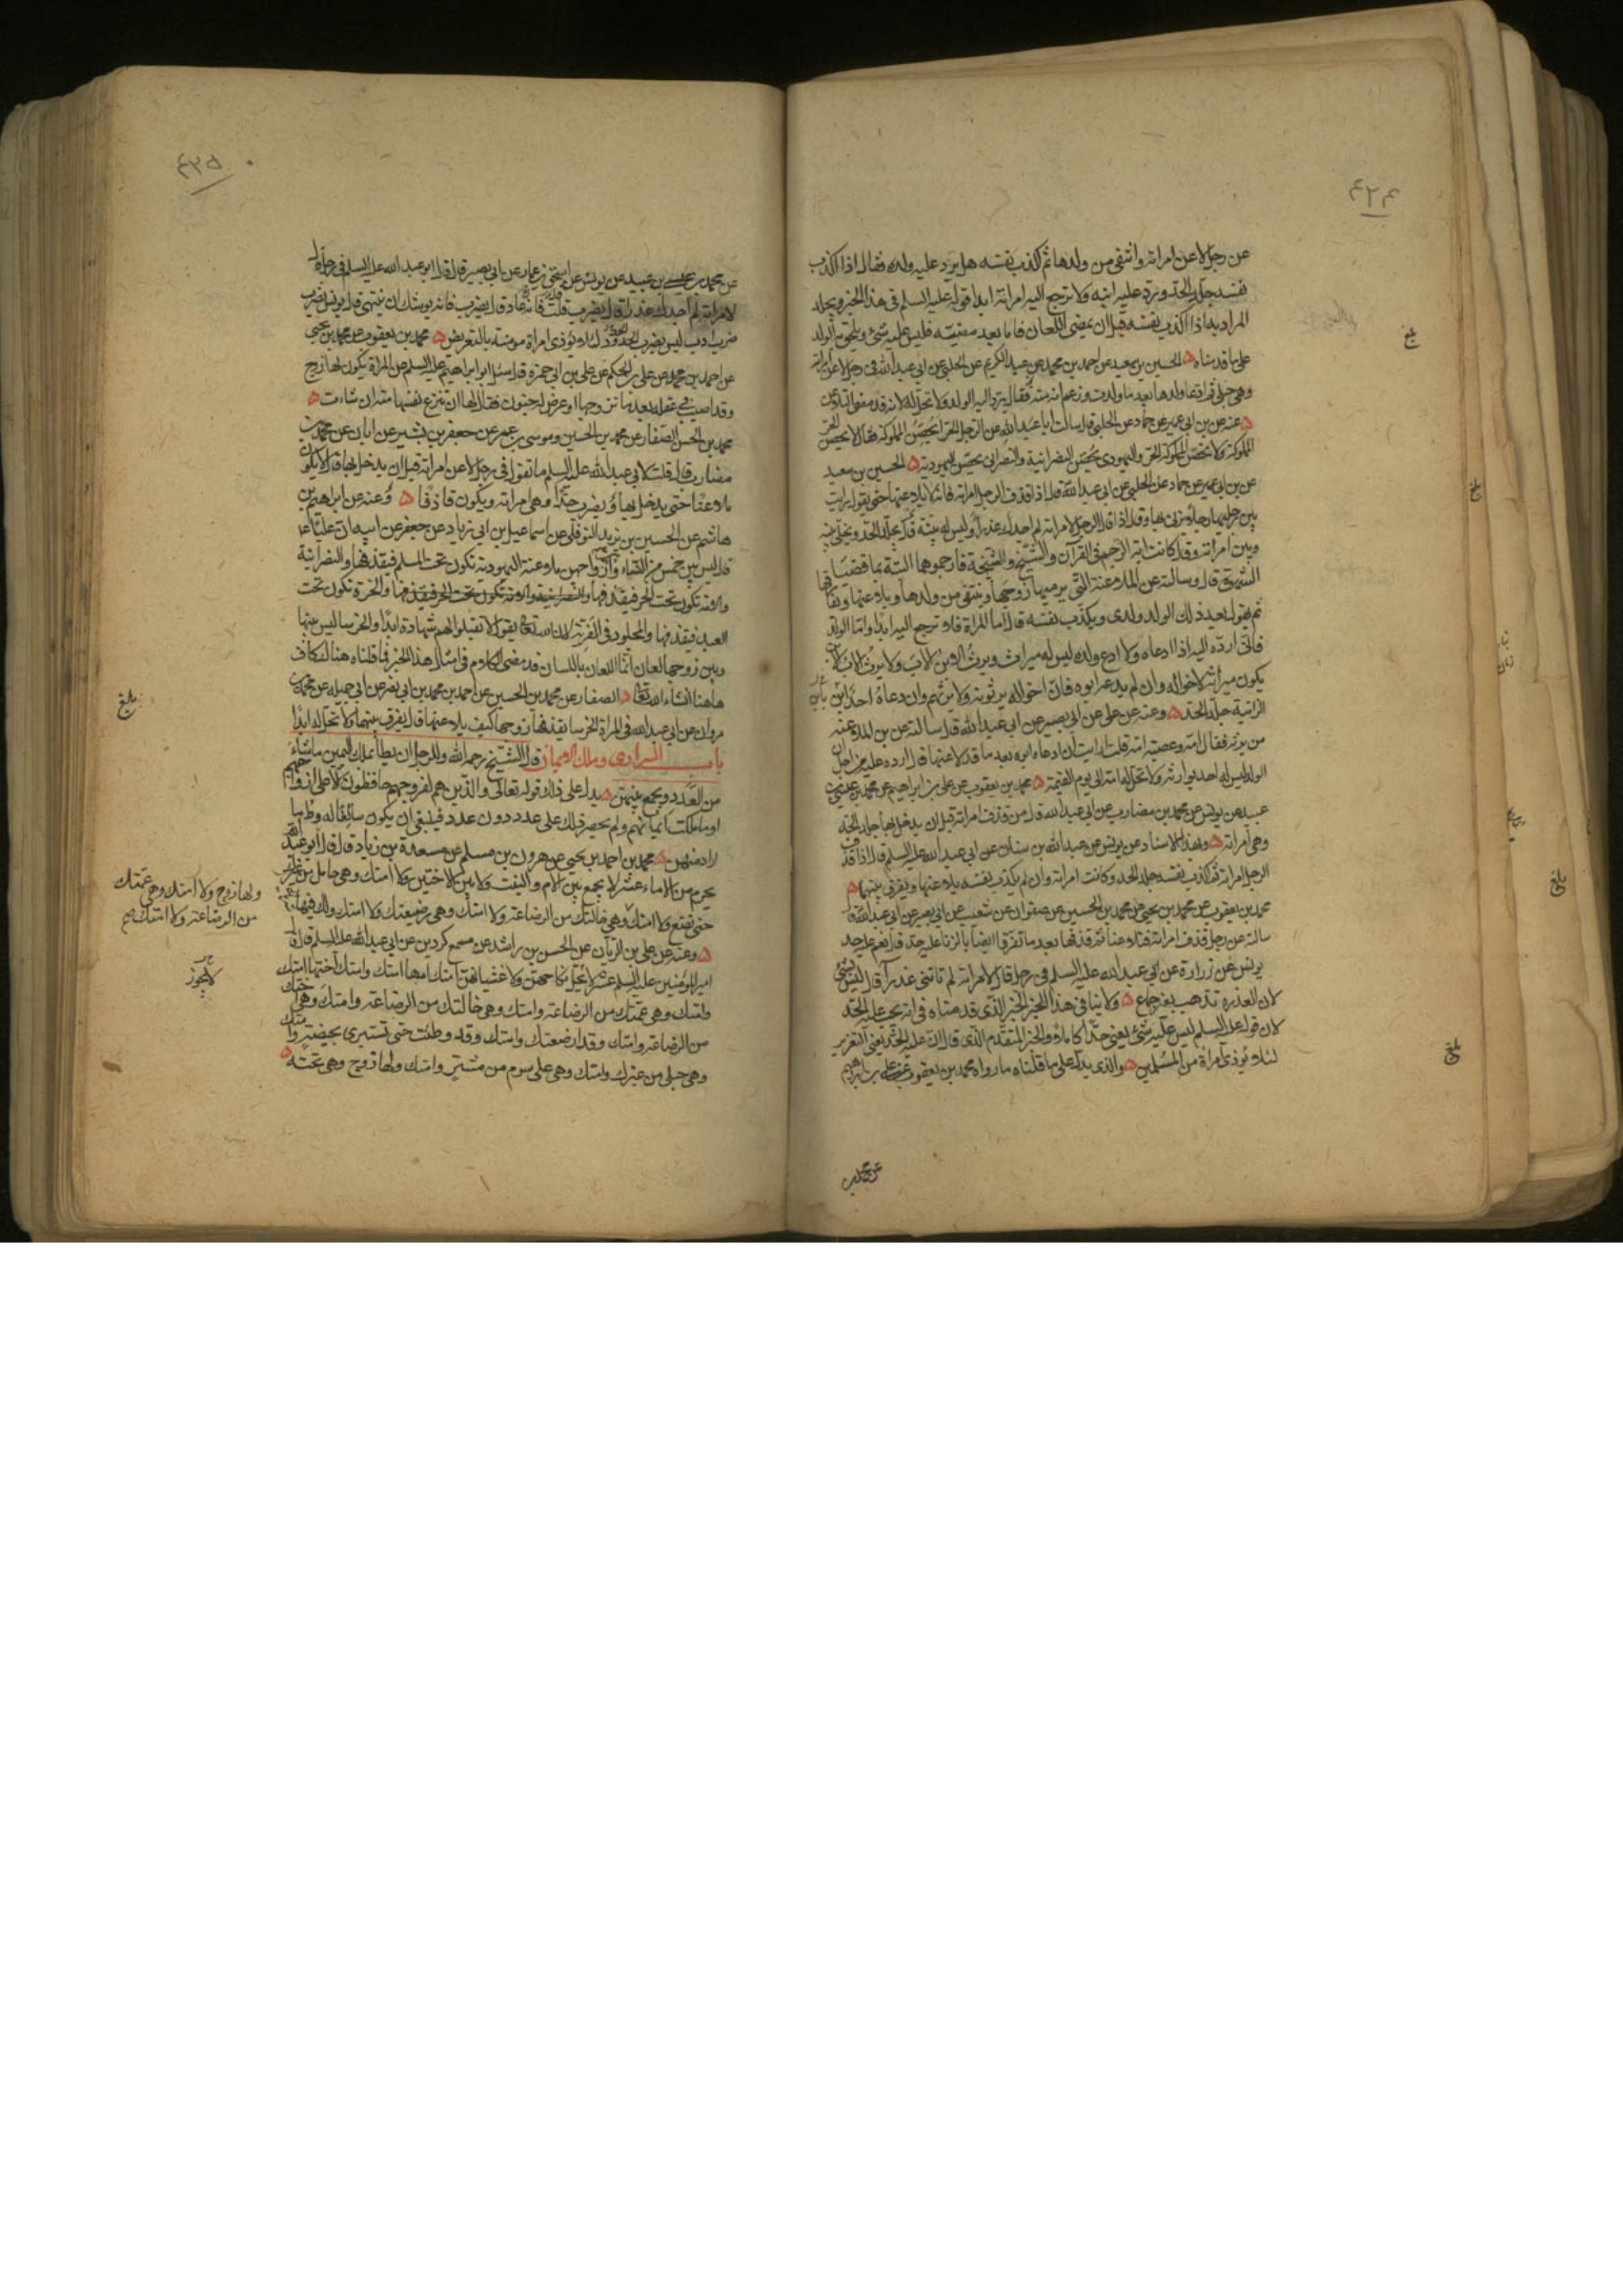 ٤٣٤
عن رجل لاعن امراته وانتفى من ولدها ثم اكذب نفسه هل يرد عليه ولده فقال اذا اكذب
نفسه جلد الحد ويرد عليه ابنه ولا ترجع اليه امراته ابدا قوله عليه السلم فى هذا الخبر ويجلد
المراد به اذا اكذب نفسه قبل ان يمضى اللعان فاما بعد مضيه فليس عليه شئ ويلحق به الولد
على ما قدمناه الحسين بن سعيد عن احمد بن محمد عن عبد الكريم عن الحلبى عن ابى عبد الله فى رجل لاعن امراته
وهى حبلى ثم ادعا ولدها بعد ما ولدت وزعم انه منه فقال يرد اليه الولد ولا تحل له لانه قد مضى التلاعن
عنه عن بن ابى عمير عن حماد عن الحلبى قال سالت ابا عبد الله عن الرجل الحر ايحصن المملوكة فقال لا يحصن الحر
المملوكة ولا تحصن المملوكة الحر واليهودى يحصن النصرانية والنصرانى يحصن اليهودية الحسين بن سعيد
عن بن ابى عمير عن حماد عن الحلبى عن ابى عبد الله قال اذا قذف الرجل امراته فانه لا يلاعنها حتى يقول رايت
بين رجليها رجلا يزنى بها وقال اذا قال الرجل لامراته لم اجدك عذراء وليس له بينة قال يجلد الحد ويخلى بينه
وبين امراته وقال كانت اية الرجم فى القرآن والشيخ والشيخة فارجموهما البتة بما قضيا
الشهوة قال وسالته عن الملاعنة التى يرميها زوجها وينتفى من ولدها ويلاعنها ويفارقها
ثم يقول بعد ذلك الولد ولدى ويكذب نفسه قال اما المراة فلا ترجع اليه ابدا واما الولد
فانى ارده اليه اذا ادعاه ولا ادع ولده ليس له ميراث ويرث الابن الاب ولا يرث الاب الابن
يكون ميراثه لاخواله وان لم يدعه ابوه فان اخواله يرثونه ولا يرثهم وان دعاه احد ابن
الزانية جلد الحد وعنه عن على عن ابى بصير عن ابى عبد الله قال سالته عن بن الملاعنة
من يرثه فقال امه وعصبة امه قلت ارايت ان ادعاه ابوه بعد ما قد لاعنها قال ارده عليه من اجل ان
الولد ليس له احد يوارثه ولا تحل له امه الى يوم القيمة محمد بن يعقوب عن على بن ابراهيم عن محمد بن عيسى بن
عبيد عن يونس عن محمد بن مضارب عن ابى عبد الله قال من قذف امراته قبل ان يدخل بها جلد الحد
وهى امراته وبهذا الاسناد عن يونس عن عبد الله بن سنان عن ابى عبد الله عليه السلم قال اذا قذف
الرجل امراته ثم اكذب نفسه جلد الحد وكانت امراته وان لم يكذب نفسه يلاعنها ويفرق بينهما
محمد بن يعقوب عن محمد بن يحيى عن محمد بن الحسين عن صفوان عن شعيب عن ابى بصير عن ابى عبد الله قال
سالته عن رجل قذف امراته فتلاعنا ثم قذفها بعد ما تفرقا ايضا بالزنا عليه حد قال نعم عليه حد
يونس عن زرارة عن ابى عبد الله عليه السلم فى رجل قال لامراته لم تاتنى عذراء قال ليس بشئ
لان العذرة تذهب بغير جماع ولا ينافى هذا الخبر الخبر الذى قدمناه فى انه يجب عليه الحد
لان قوله عليه السلم ليس عليه شئ يعنى حدا كاملا والخبر المتقدم الذى قال ان عليه الحد يعنى التعزير
لئلا يؤذى امراة من المسلمين والذى يدل على ما قلناه ما رواه محمد بن يعقوب عن على بن ابراهيم
عن محمد بن
بلغ
بلغ
بلغ
بلغ
٤٣٥
عن محمد بن عيسى بن عبيد عن يونس عن اسحق بن عمار عن ابى بصير قال قال ابو عبد الله عليه السلم فى رجل قال
لامراته لم اجدك عذراء قال يضرب قلت فانه عاد قال يضرب فانه يوشك ان ينتهى قال يونس يضرب
ضرب ادب ليس يضرب الحدود لئلا يؤذى امراة مومنة بالتعريض محمد بن يعقوب عن محمد بن يحيى
عن احمد بن محمد عن على بن الحكم عن على بن ابى حمزة قال سئل ابو ابراهيم عليه السلم عن المراة يكون لها زوج
وقد اصيب فى عقله بعد ما تزوجها او عرض له جنون فقال لها ان تنزع نفسها منه ان شاءت
محمد بن الحسن الصفار عن محمد بن الحسين وموسى بن عمر عن جعفر بن بشير عن ابان عن محمد بن
مضارب قال قلت لابى عبد الله عليه السلم ما تقول فى رجل لاعن امراته قبل ان يدخل بها قال لا يكون
ملاعنا حتى يدخل بها ويضرب حدا وهى امراته ويكون قاذفا وعنه عن ابراهيم بن
هاشم عن الحسين بن يزيد النوفلى عن اسماعيل بن ابى زياد عن جعفر عن ابيه ان عليا ع
قال ليس بين خمس من النساء وازواجهن ملاعنة اليهودية تكون تحت المسلم فيقذفها والنصرانية
والامة تكون تحت الحر فيقذفها والنصرانية والامة تكون تحت الحر فيقذفها والحرة تكون تحت
العبد فيقذفها والمجلود فى الفرية لان الله تعالى يقول لا تقبلوا لهم شهادة ابدا والخرسا ليس بينها
وبين زوجها لعان انما اللعان باللسان قد مضى الكلام فى امثال هذا الخبر فما قلناه هناك كاف
هاهنا انشاء الله تعالى الصفار عن محمد بن الحسين عن احمد بن محمد بن ابى نصر عن ابى جميله عن محمد بن
مروان عن ابى عبد الله فى المراة الخرسا يقذفها زوجها كيف يلاعنها قال يفرق بينهما ولا تحل له ابدا
باب السرارى وملك الايمان قال الشيخ رحمه الله وللرجل ان يطأ بملك اليمين ما شاء
من العدد ويجمع بينهن يدل على ذلك قوله تعالى والذين هم لفروجهم حافظون الا على ازواجهم
او ما ملكت ايمانهم ولم يحصر ذلك على عدد دون عدد فينبغى ان يكون سائغا له وطى ما
اراد منهن محمد بن احمد بن يحيى عن هرون بن مسلم عن مسعدة بن زياد قال قال ابو عبد الله
يحرم من الاماء عشر لا يجمع بين الام والبنت ولا بين الاختين ولا امتك وهى حامل من غيرك
حتى تضع ولا امتك وهى خالتك من الرضاعة ولا امتك وهى رضيعتك ولا امتك ولك فيها
وعنه عن على بن الريان عن الحسن بن راشد عن مسمع كردين عن ابى عبد الله عليه السلم قال قال
امير المومنين عليه السلم عشر لا يحل نكاحهن ولا غشيانهن امتك امها امتك وامتك اختها امتك
وامتك وهى عمتك من الرضاعة وامتك وهى خالتك من الرضاعة وامتك وهى اختك
من الرضاعة وامتك وقد ارضعتك وامتك وقد وطئت حتى تستبرئ بحيضة وامتك
وهى حبلى من غيرك وامتك وهى على سوم من مشتر وامتك ولها زوج وهى تحته
بلغ
ولها زوج ولا امتك وهى عمتك
من الرضاعة ولا امتك صح
لا يجوز